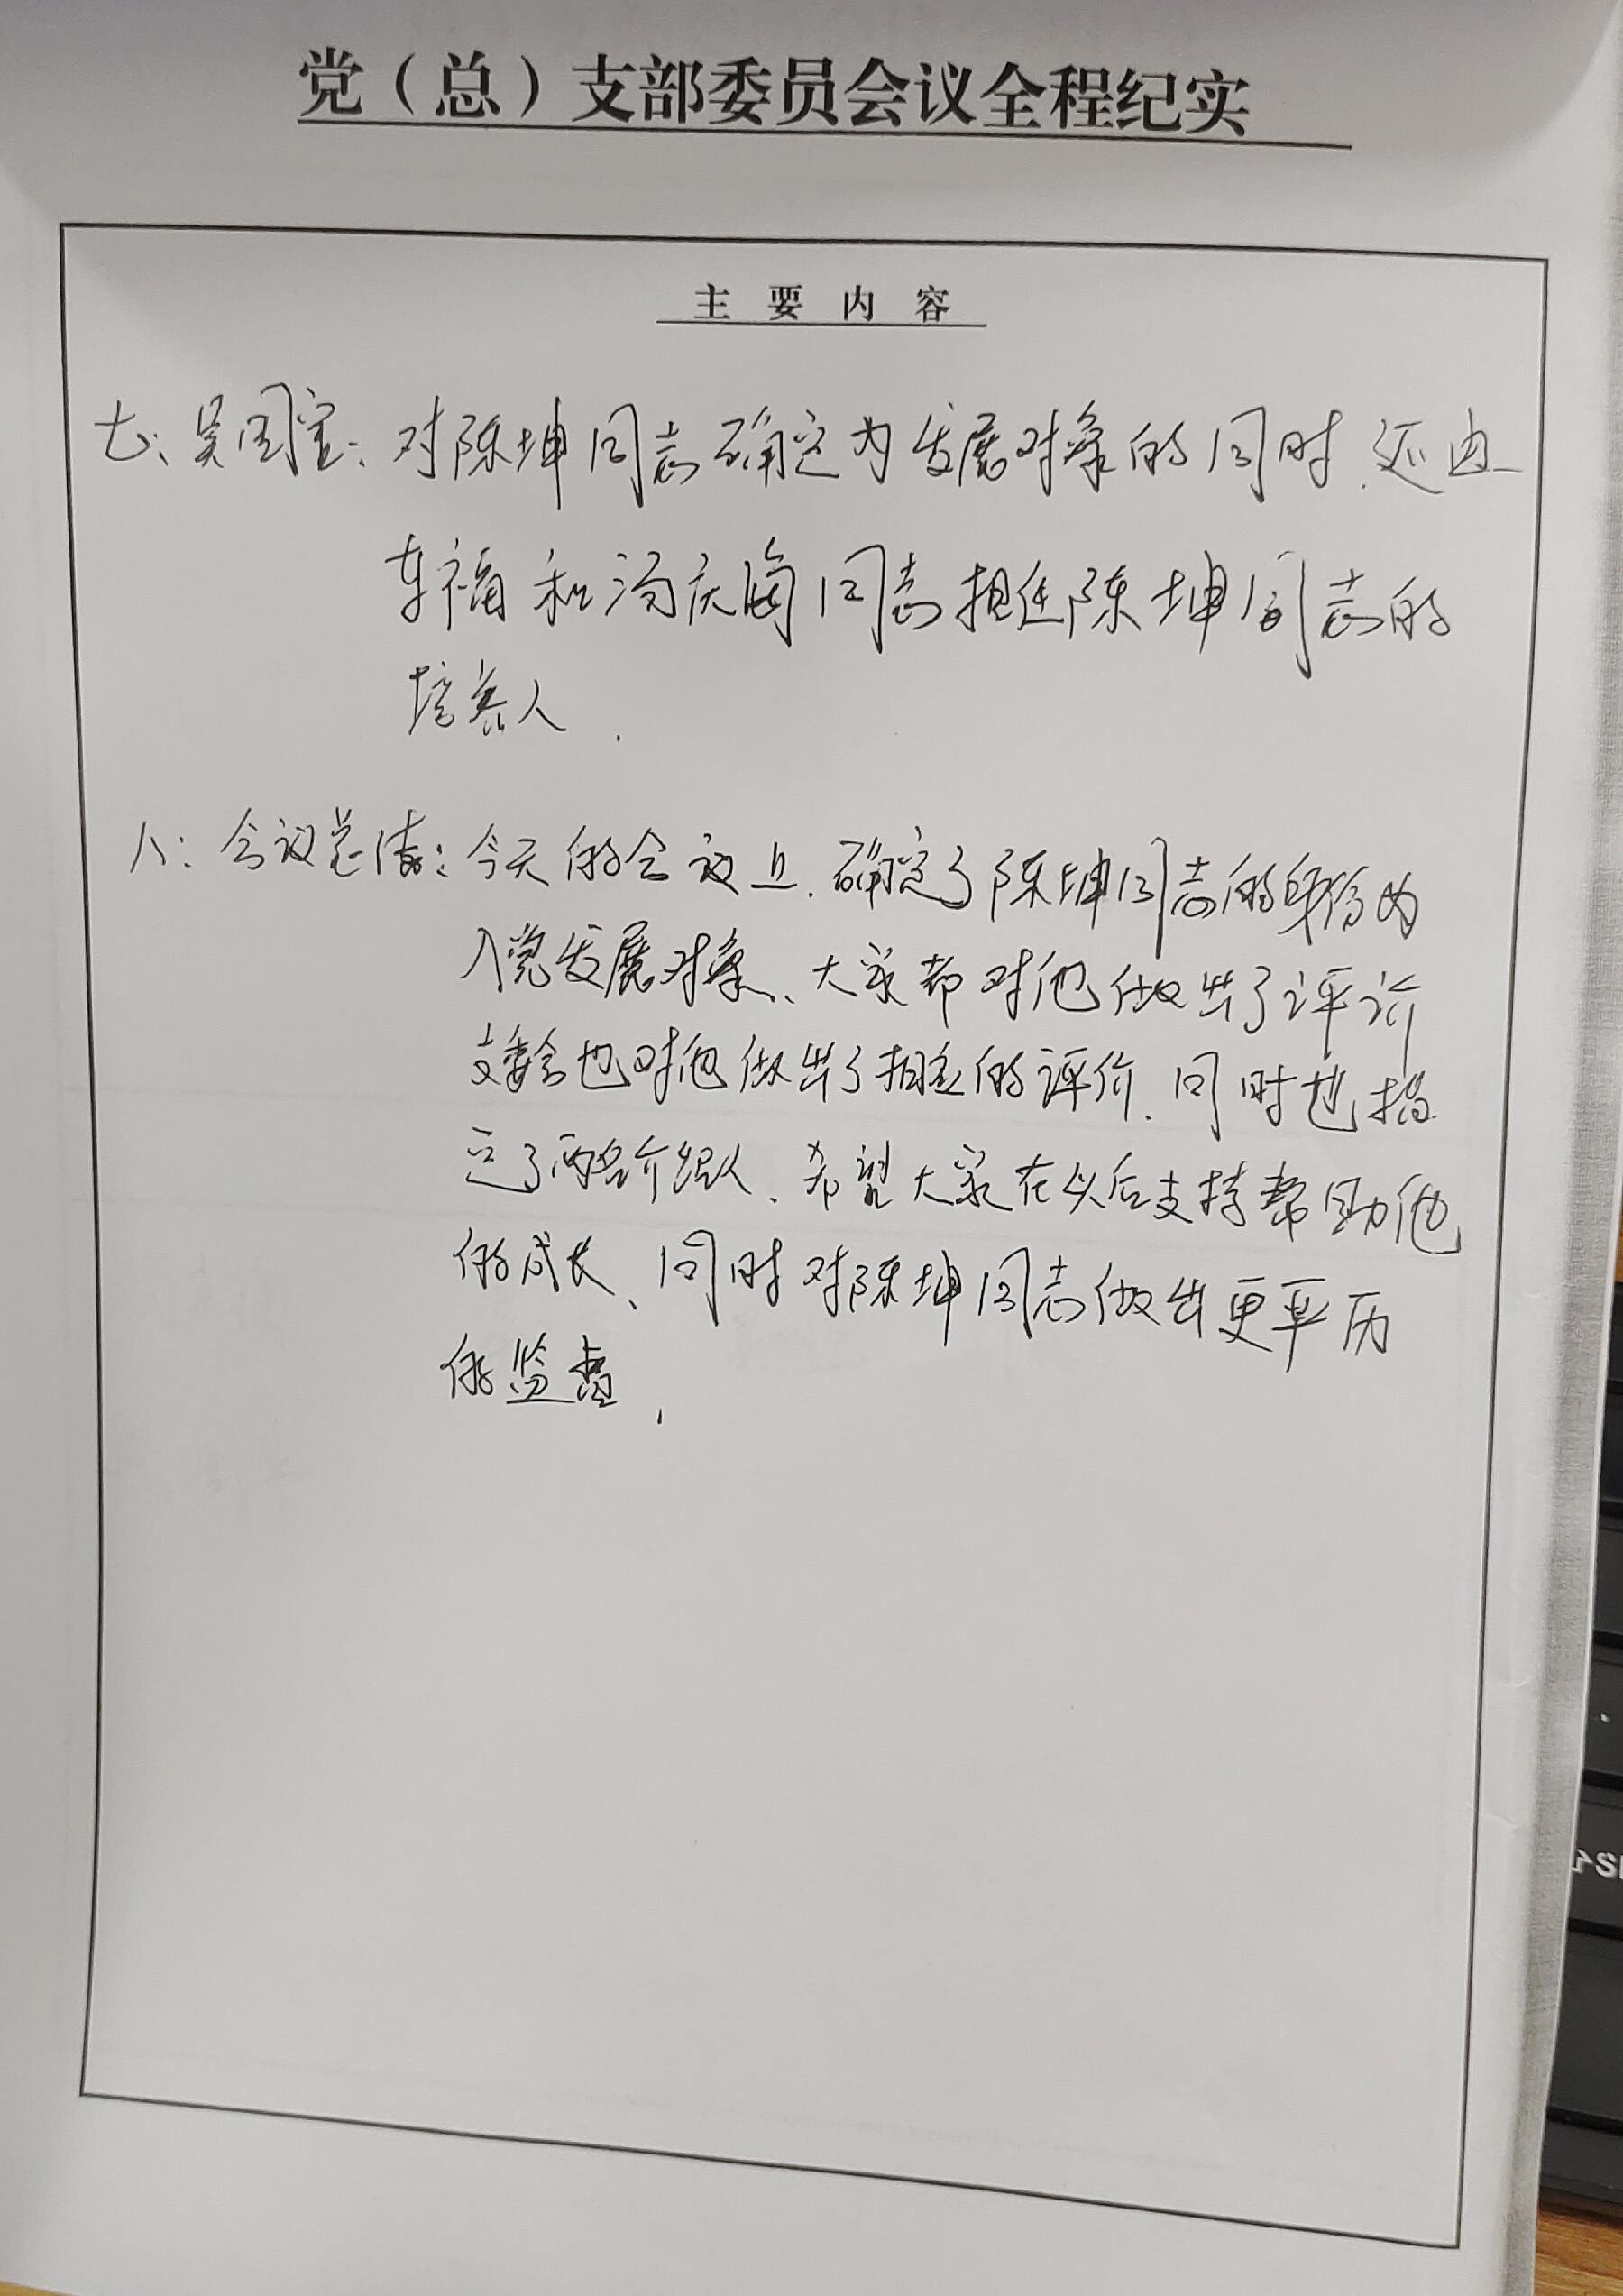 党（总）支部委员会议全程纪实
主要内容
七、吴国宝：对陈坤同志确定为发展对象的同时，还由
车福和汤庆海同志担任陈坤同志的
培养人．
八：会议总结：今天的会议上，确定了陈坤同志的身份为
入党发展对象、大家都对他做出了评价
支委会也对他做出了相应的评价，同时也指
定了两名介绍人、希望大家在以后支持帮助他
的成长、同时对陈坤同志做出更严历
的监督，